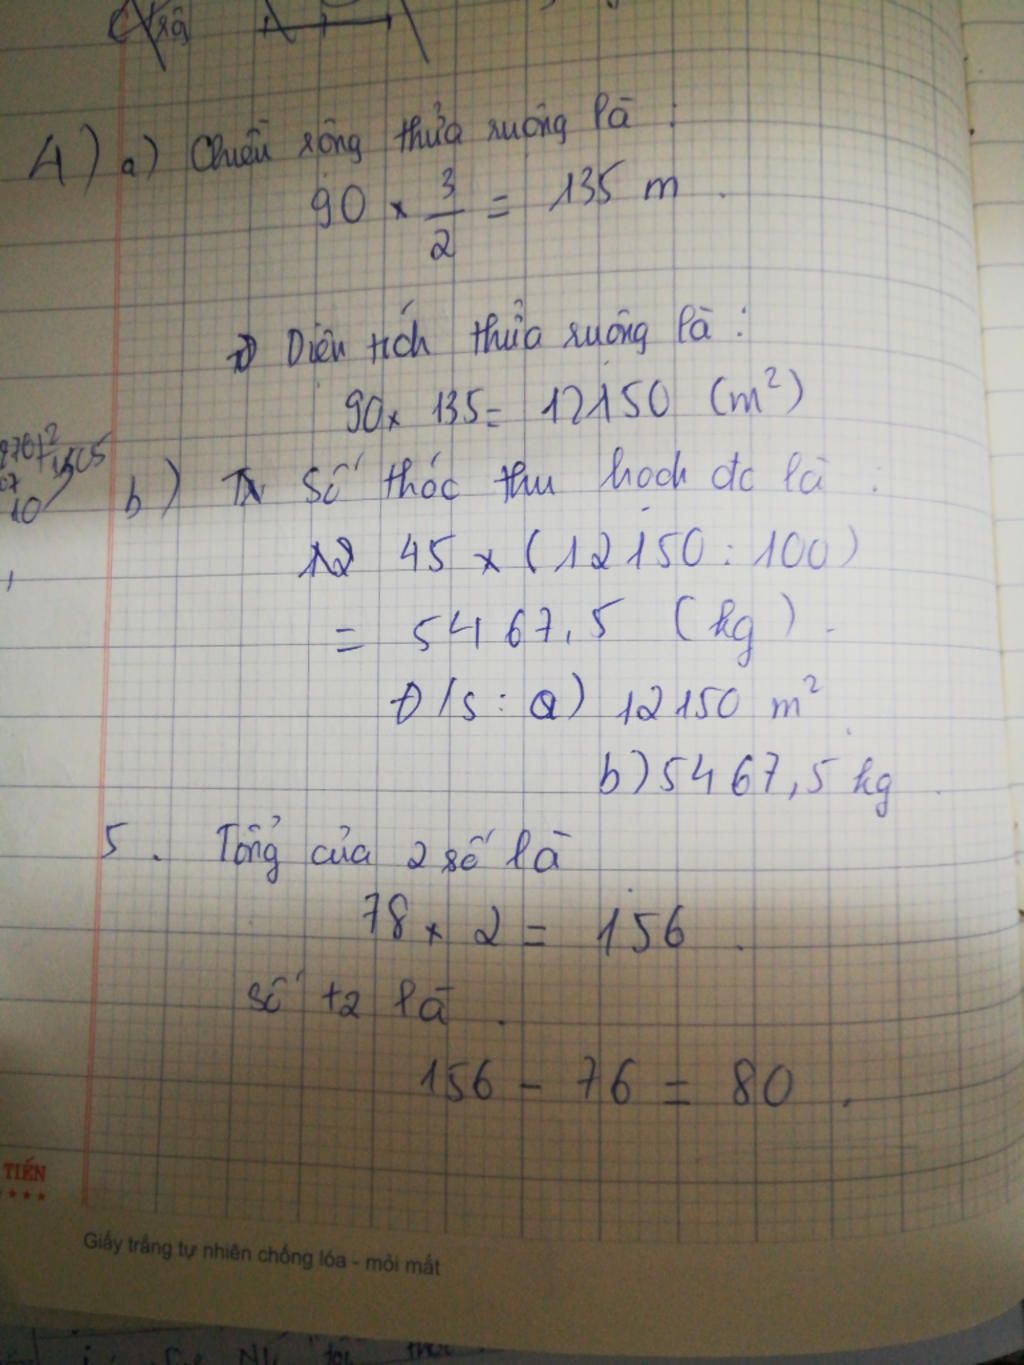 số
4) a) Chiều rộng thửa ruộng là :
90 × 3/2 = 135 m .
Diện tích thửa ruộng là :
90 × 135 = 12150 (m²)
b) Số thóc thu hoạch đc là :
45 × (12150 : 100)
= 5467,5 (kg) .
Đ/s : a) 12150 m²
b) 5467,5 kg .
5 . Tổng của 2 số là
78 × 2 = 156 .
số t2 là .
156 - 76 = 80 .
TIẾN
Giấy trắng tự nhiên chống lóa - mỏi mắt